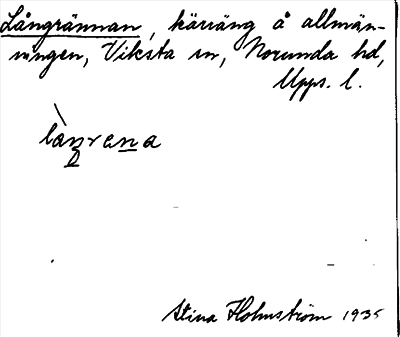 Långrännan, kärräng å allmän-
ningen, Viksta sn, Norunda hd,
Upps. l.
lanrena
Stina Holmström 1935